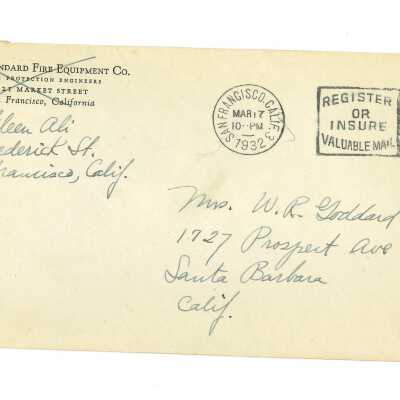 NDARD FIRE EQUIPMENT CO.
PROTECTION ENGINEERS
21 MARKET STREET
. FRANCISCO, CALIFORNIA
leen Ali
ederick St.
Francisco, Calif.
SAN FRANCISCO, CALIF. 3
MAR 17
10-PM
1932
REGISTER
OR
INSURE
VALUABLE MAIL
Mrs. W. R. Goddard
1727 Prospect Ave
Santa Barbara
Calif.